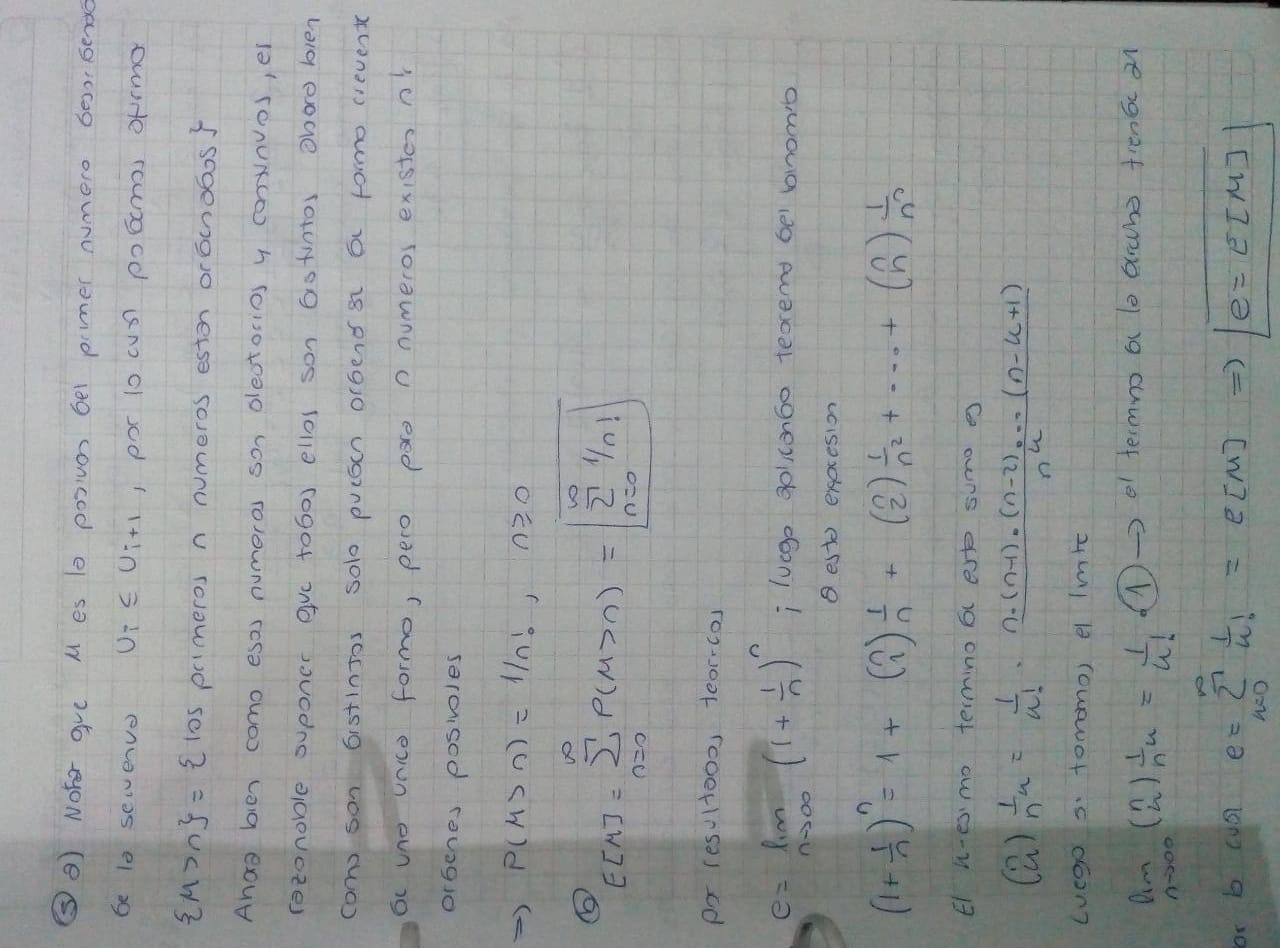 ③ a) Notar que M es la posicion del primer numero desordenado
de la secuencia Ui ≤ Ui+1, por lo cual podemos afirmar
{M > n} = {los primeros n numeros estan ordenados}
Ahora bien como esos numeros son aleatorios y continuos, es
razonable suponer que todos ellos son distintos ahora bien
como son distintos solo pueden ordenarse de forma creciente
de una unica forma, pero para n numeros existen n!
ordenes posibles
=> P(M > n) = 1/n! , n ≥ 0
ⓑ E[M] = ∑_{n=0}^{∞} P(M > n) = ∑_{n=0}^{∞} 1/n!
por resultados teoricos
e = lim_{n→∞} (1 + 1/n)^n ; luego aplicando teorema del binomio
a esta expresion
(1 + 1/n)^n = 1 + (n 1) 1/n + (n 2) 1/n^2 + .... + (n n) 1/n^n
El k-esimo termino de esta suma es
(n k) 1/n^k = 1/k! . n.(n-1).(n-2)...(n-k+1) / n^k
Luego si tomamos el limite
lim_{n→∞} (n k) 1/n^k = 1/k! . ① → el termino de la derecha tiende al
por lo cual e = ∑_{k=0}^{∞} 1/k! = E[M] => e = E[M]